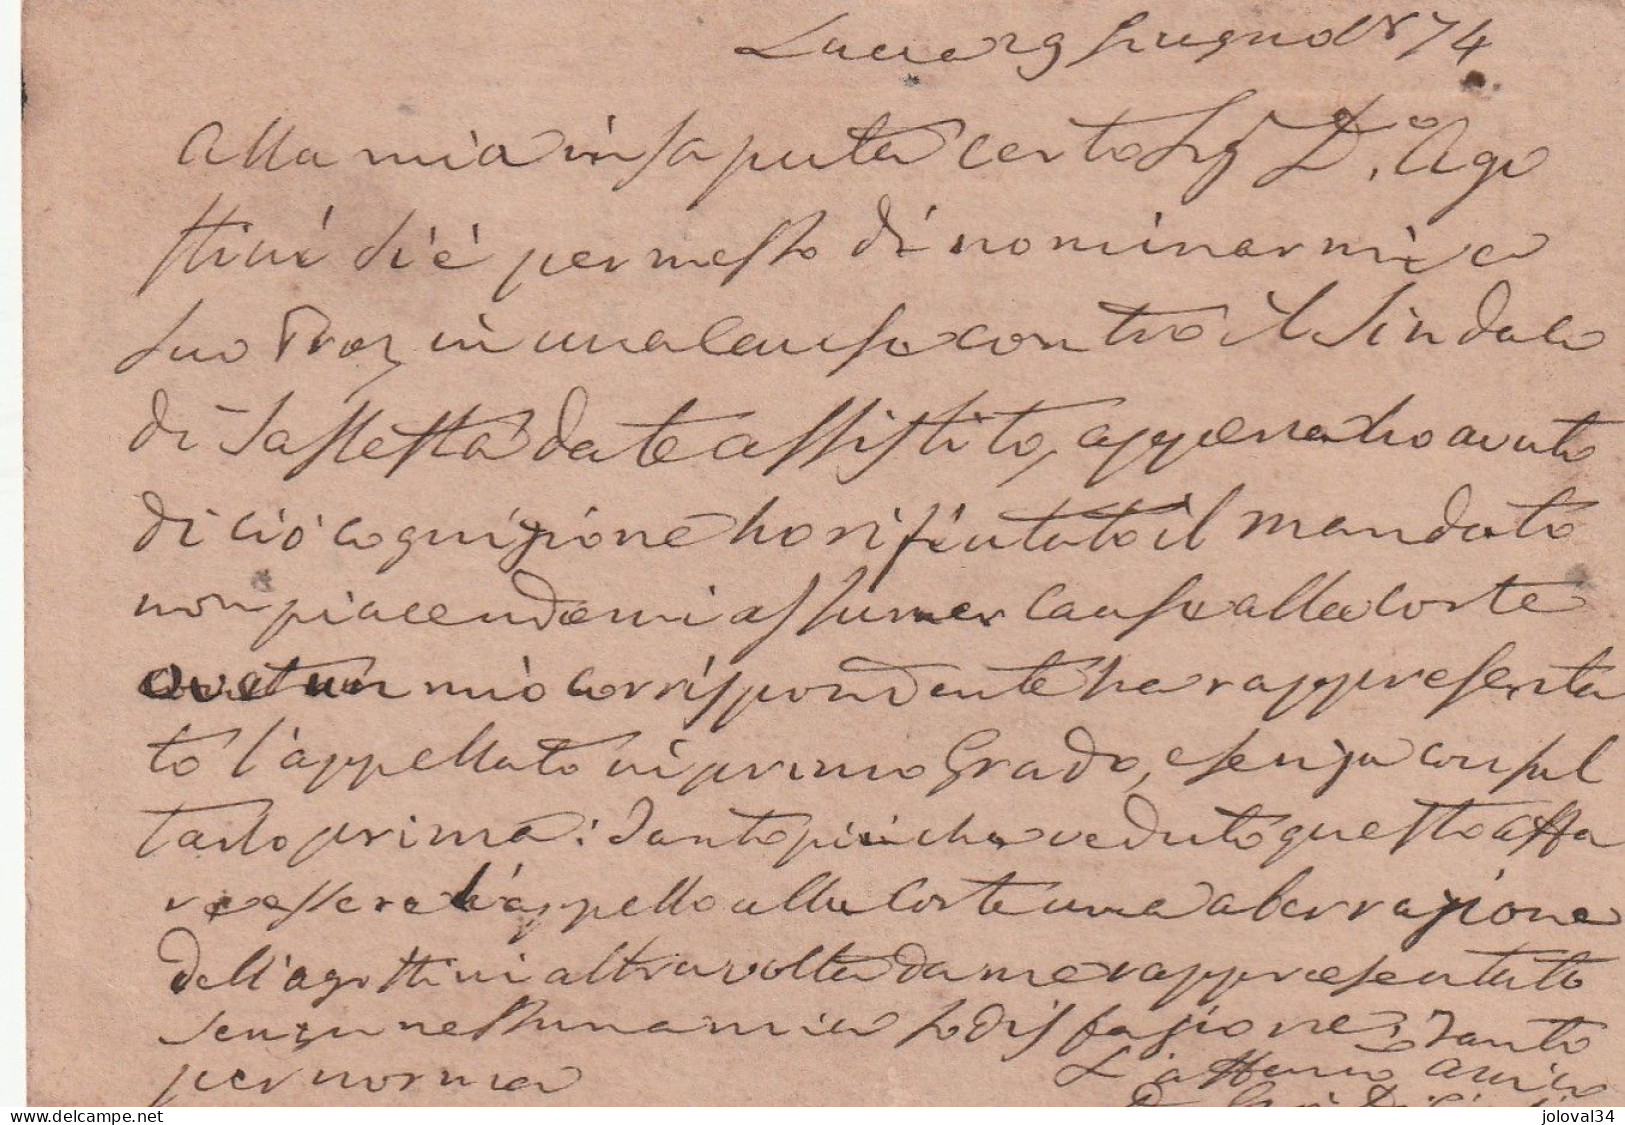 Lucca 29 Giugno 1874
Alla mia insaputa certo Sig D. Ago
stini si è permesso di nominarmi a
suo Proz in una causa contro il Sindaco
di Sassetta da te assistito, appena ho avuto
di ciò cognizione ho rifiutato il mandato
non piacendomi assumer cause alla Corte
ove un mio corrispondente ha rappresenta
to l'appellato in primo Grado, e senza consul
tarlo prima: Tanto più che ho veduto questo affa
re essere l'appello alla Corte una aberrazione
dell'Agostini altra volta da me rappresentato
senza nessuna mia sodisfazione; Tanto
per norma
L'aff amico
joloval34